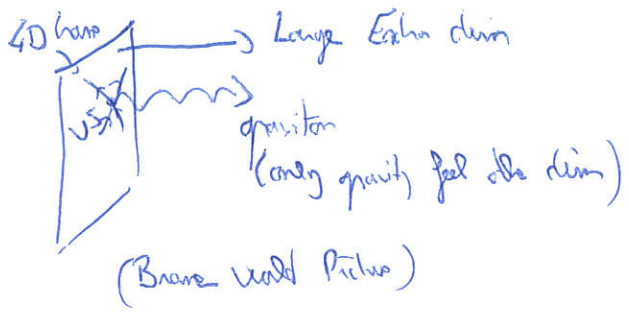 4D
Large Extra dim
graviton
(only gravity feel the dim)
(Brane World Picture)